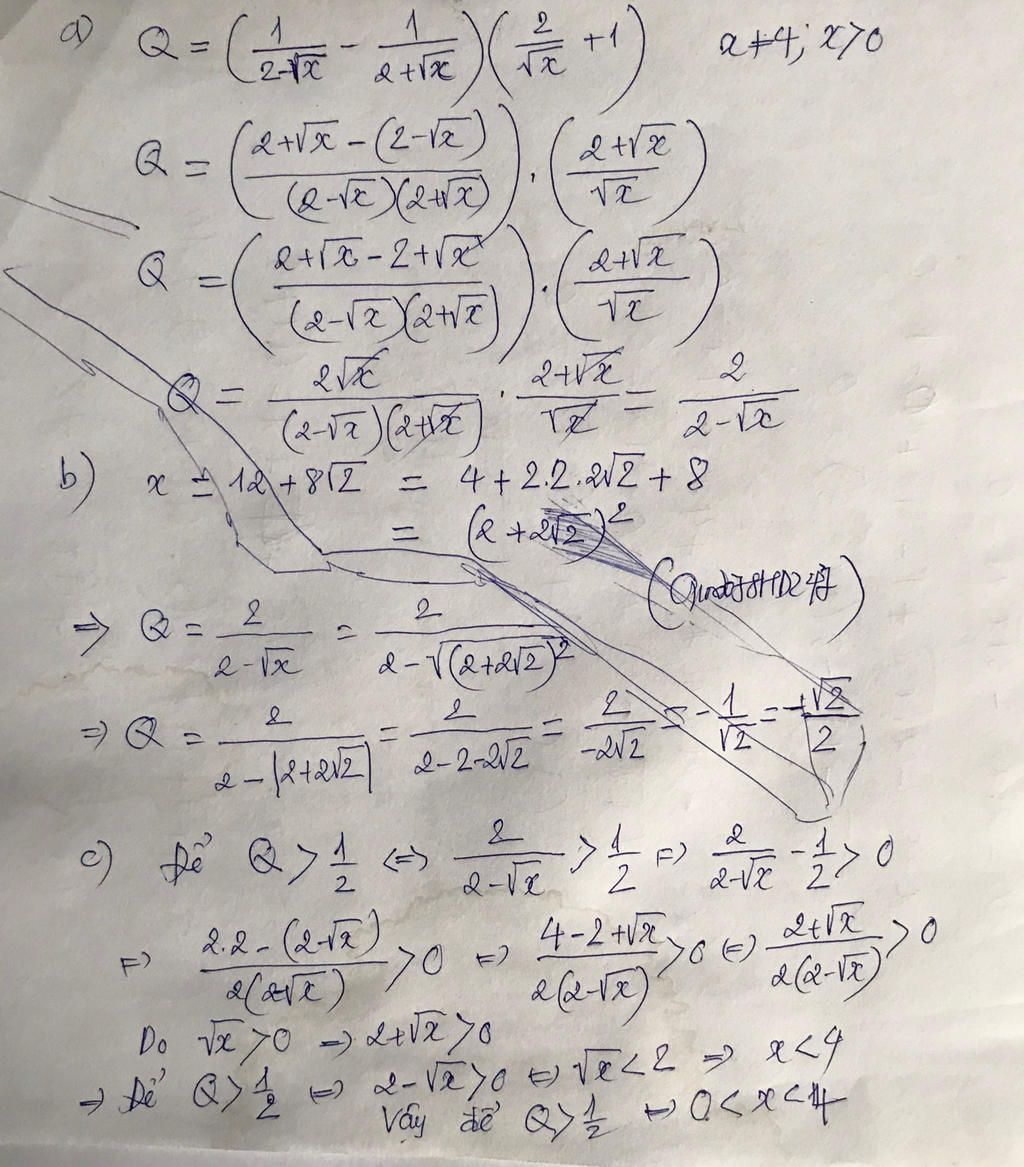 a) Q = (1/(2-√x) - 1/(2+√x))(2/√x + 1) x≠4; x>0
Q = ((2+√x - (2-√x))/((2-√x)(2+√x))) . ((2+√x)/√x)
Q = ((2+√x - 2+√x)/((2-√x)(2+√x))) . ((2+√x)/√x)
Q = 2√x/((2-√x)(2+√x)) . (2+√x)/√x = 2/(2-√x)
b) x = 12 + 8√2 = 4 + 2.2.2√2 + 8
= (2 + 2√2)²
=> Q = 2/(2-√x) = 2/(2-√(2+2√2)²)
=> Q = 2/(2-|2+2√2|) = 2/(2-2-2√2) = 2/(-2√2) = -1/√2 = -√2/2
c) Để Q > 1/2 <=> 2/(2-√x) > 1/2 <=> 2/(2-√x) - 1/2 > 0
<=> (2.2 - (2-√x))/(2(2-√x)) > 0 <=> (4-2+√x)/(2(2-√x)) > 0 <=> (2+√x)/(2(2-√x)) > 0
Do √x > 0 => 2+√x > 0
=> Để Q > 1/2 <=> 2-√x > 0 <=> √x < 2 => x < 4
Vậy để Q > 1/2 <=> 0 < x < 4